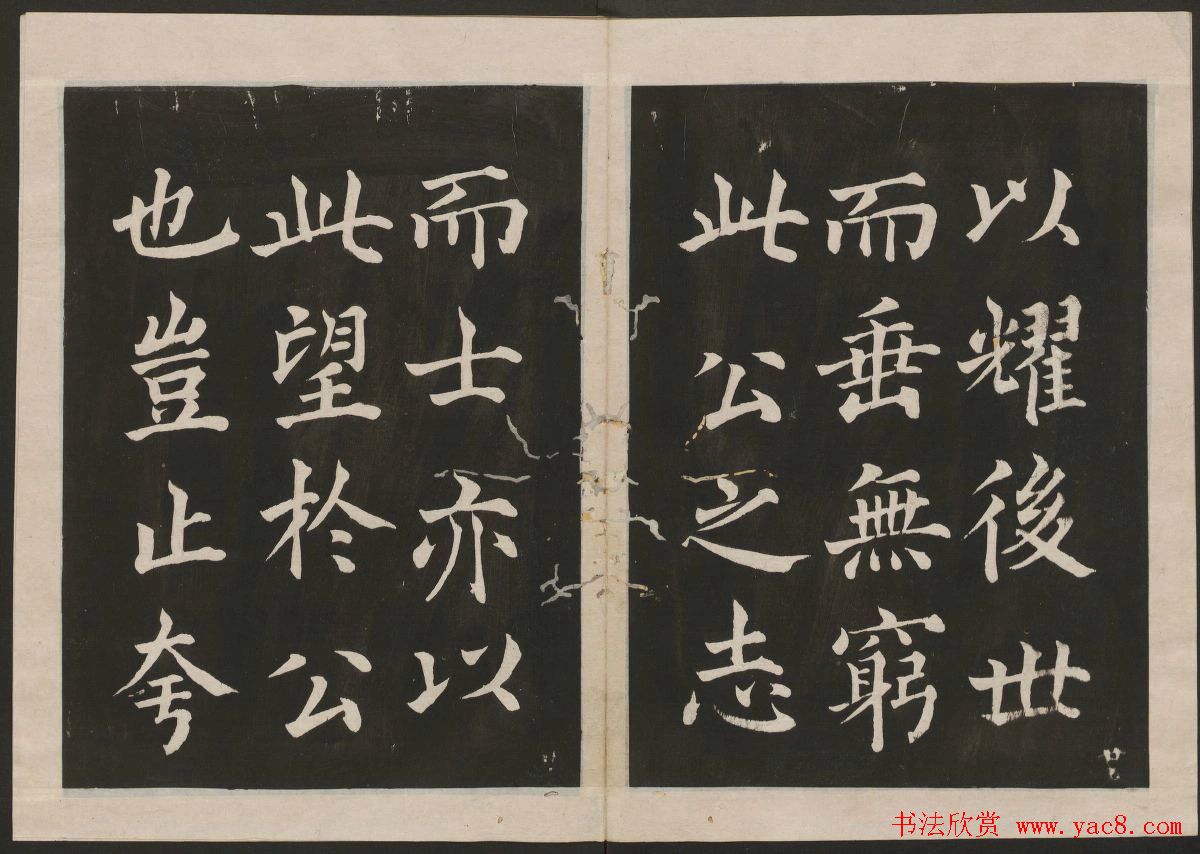 以耀後世
而垂無窮
此公之志
而士亦以
此望於公
也豈止夸
书法欣赏 www.yac8.com